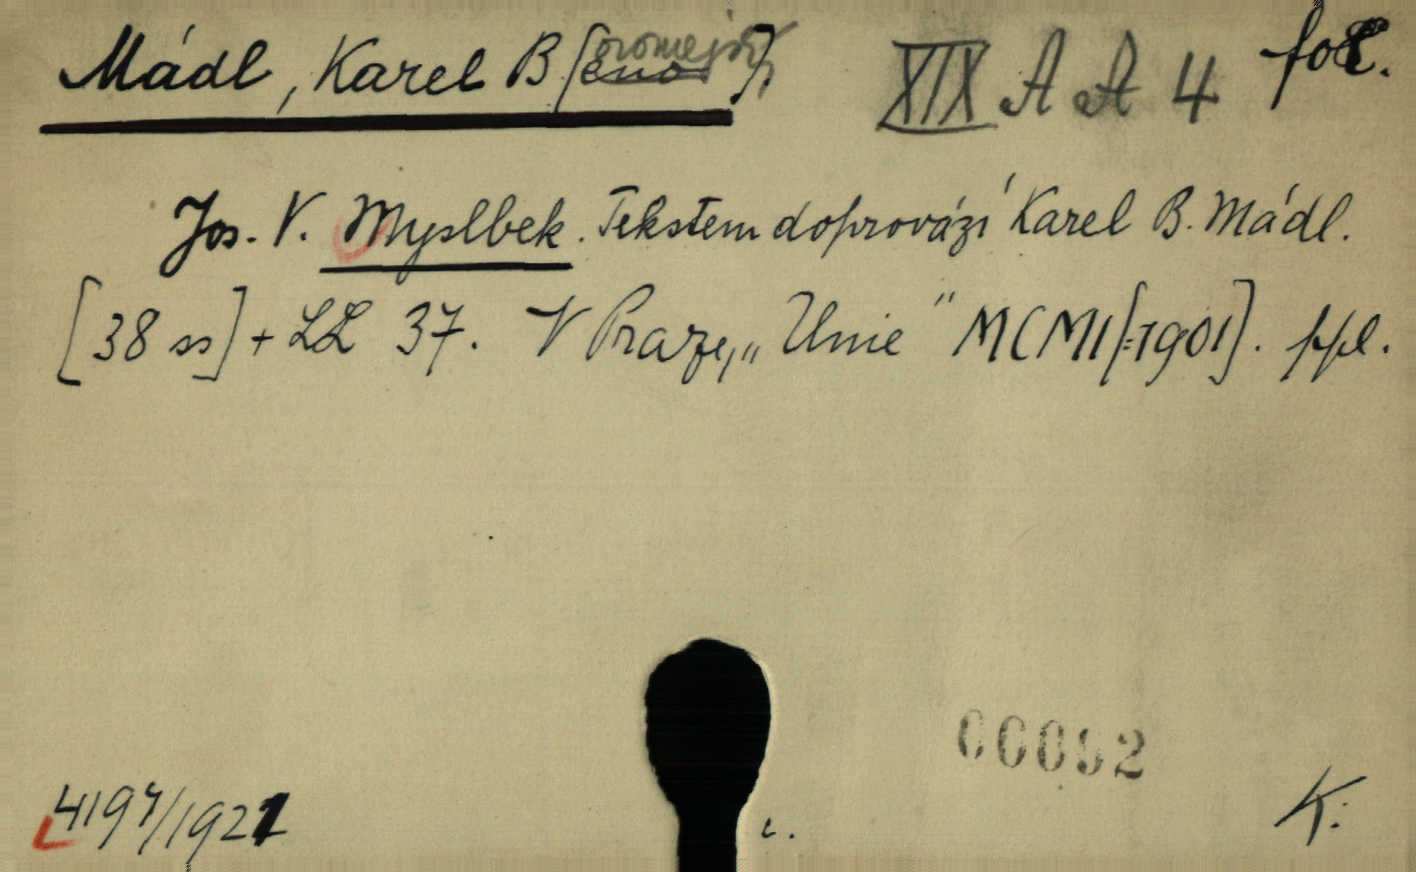 Mádl, Karel B[oromejský]. XIX A A 4 fol.
Jos. V. Myslbek. Tekstem doprovází Karel B. Mádl.
[38 ss] + LL 37. V Praze, „Unie" MCMI [=1901]. ppl.
00092
4197/1921
c. K.